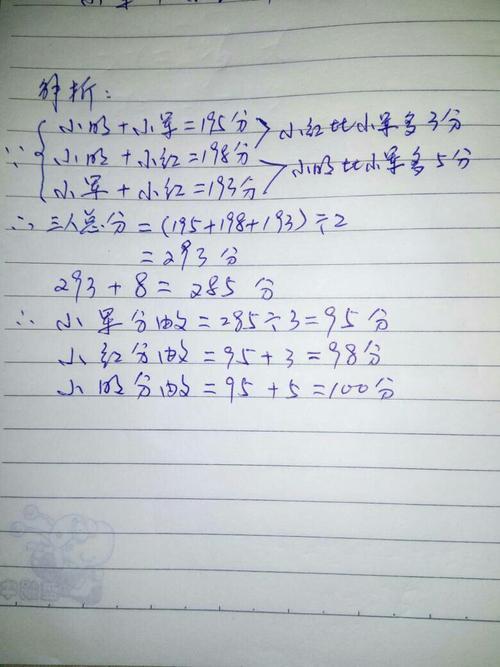 解析：
小明+小军=195分 小红比小军多3分
∵ 小明+小红=198分 小明比小军多5分
小军+小红=193分
∴ 三人总分=(195+198+193)÷2
=293分
293+8=285分
∴ 小军分数=285÷3=95分
小红分数=95+3=98分
小明分数=95+5=100分